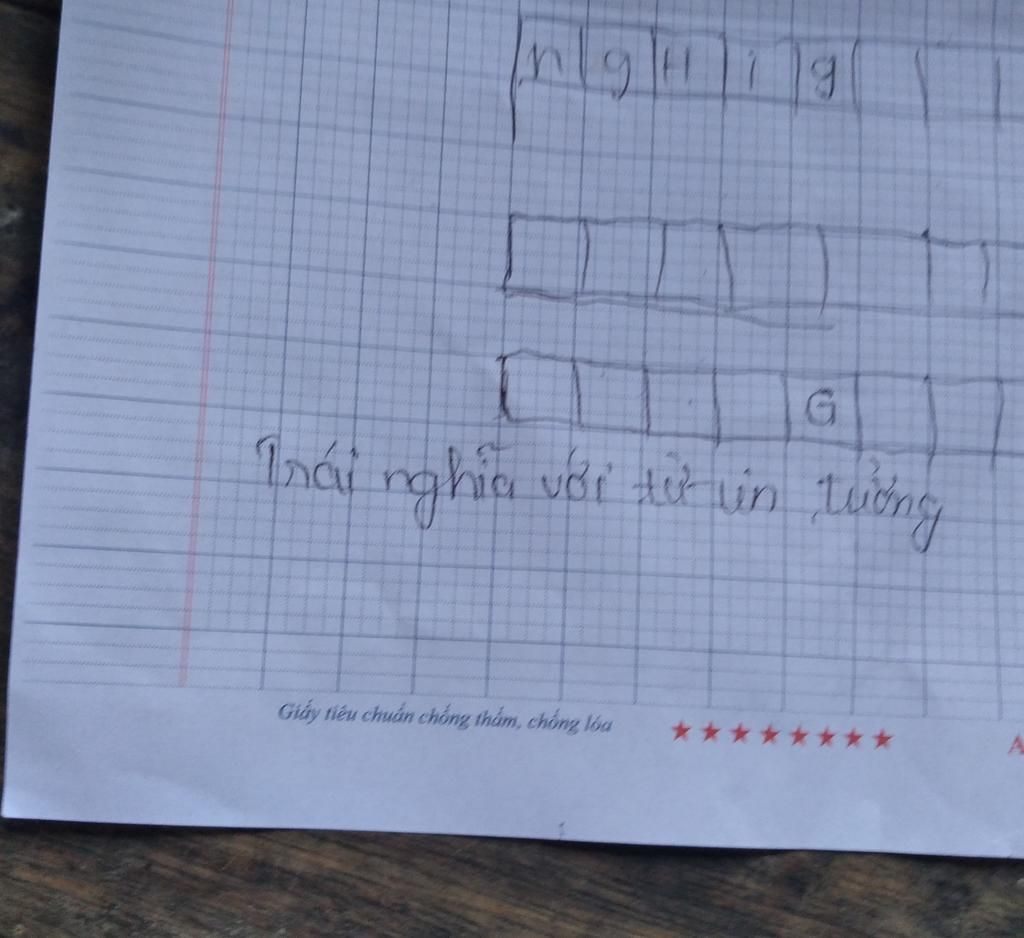 n g H i g
G
Trái nghĩa với từ tin tưởng
Giấy tiêu chuẩn chống thấm, chống lóa
A